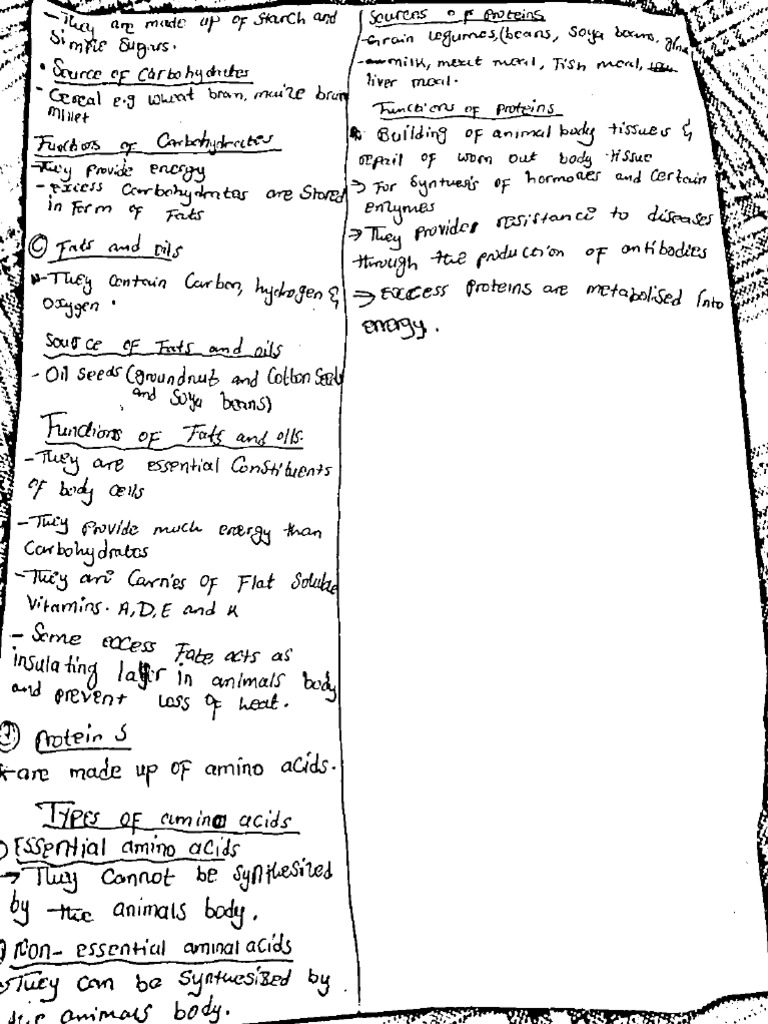 - They are made up of starch and
simple sugars.
• Source of Carbohydrates
- Cereal e.g wheat bran, maize bran
millet
Functions of Carbohydrates
- They provide energy
- excess Carbohydrates are Stored
in form of Fats
(C) Fats and oils
- They contain Carbon, hydrogen &
oxygen.
Source of Fats and oils
- Oil seeds (groundnuts and Cotton seeds
and soya beans)
Functions of Fats and oils.
- They are essential Constituents
of body cells
- They provide much energy than
Carbohydrates
- They are Carries of Flat Soluble
Vitamins. A, D, E and K
- Some excess Fate acts as
insulating layer in animals body
and prevent Loss of heat.
Proteins
- are made up of amino acids.
Types of amino acids
Essential amino acids
→ They Cannot be synthesized
by the animals body.
Non-essential aminal acids
They can be synthesized by
animals body.
Sources of proteins
- Grain legumes, (beans, soya beans,
milk, meat meal, Fish meal,
liver meal.
Functions of proteins
Building of animal body tissues &
repail of worn out body tissue
→ For Synthesis of hormones and Certain
enzymes
→ They provide resistance to diseases
through the production of antibodies
⇒ excess proteins are metabolised into
energy.